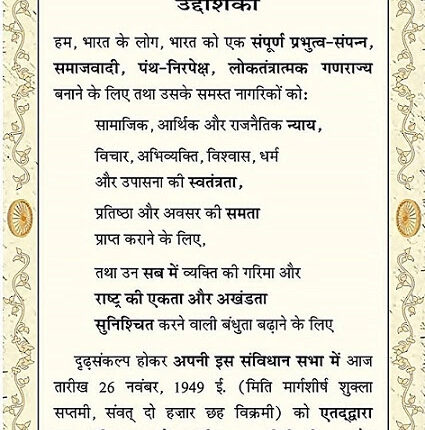 उद्देशिका
हम, भारत के लोग, भारत को एक संपूर्ण प्रभुत्व-संपन्न,
समाजवादी, पंथ-निरपेक्ष, लोकतंत्रात्मक गणराज्य
बनाने के लिए तथा उसके समस्त नागरिकों को:
सामाजिक, आर्थिक और राजनैतिक न्याय,
विचार, अभिव्यक्ति, विश्वास, धर्म
और उपासना की स्वतंत्रता,
प्रतिष्ठा और अवसर की समता
प्राप्त कराने के लिए,
तथा उन सब में व्यक्ति की गरिमा और
राष्ट्र की एकता और अखंडता
सुनिश्चित करने वाली बंधुता बढ़ाने के लिए
दृढ़संकल्प होकर अपनी इस संविधान सभा में आज
तारीख 26 नवंबर, 1949 ई. (मिति मार्गशीर्ष शुक्ला
सप्तमी, संवत् दो हज़ार छह विक्रमी) को एतद्द्वारा